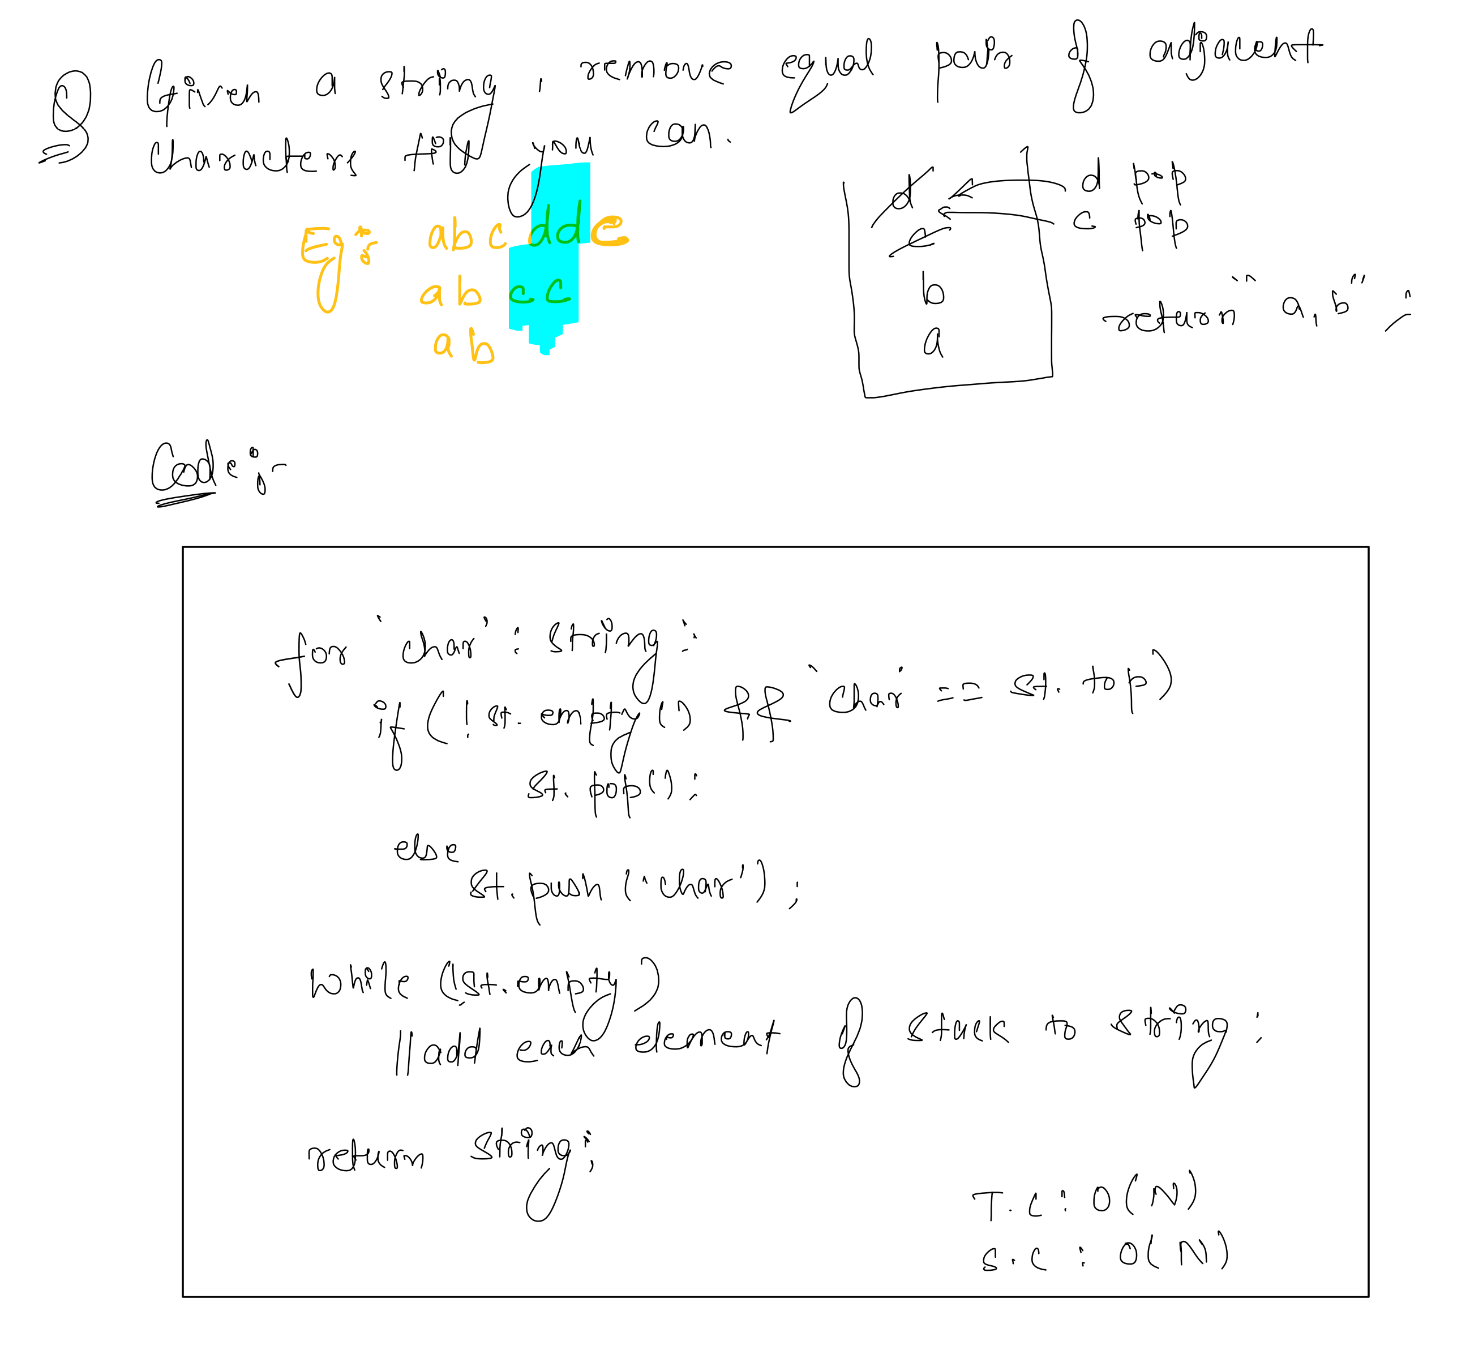 Q Given a string, remove equal pair of adjacent
characters till you can.
Eg: abcddc
abcc
ab
d
c
b
a
d pop
c pop
return "a,b";
Code:-
for 'char' : string:
if (!st.empty() && 'char' == st.top)
st.pop();
else
st.push('char');
while (!st.empty)
//add each element of stack to string;
return string;
T.C : O(N)
S.C : O(N)